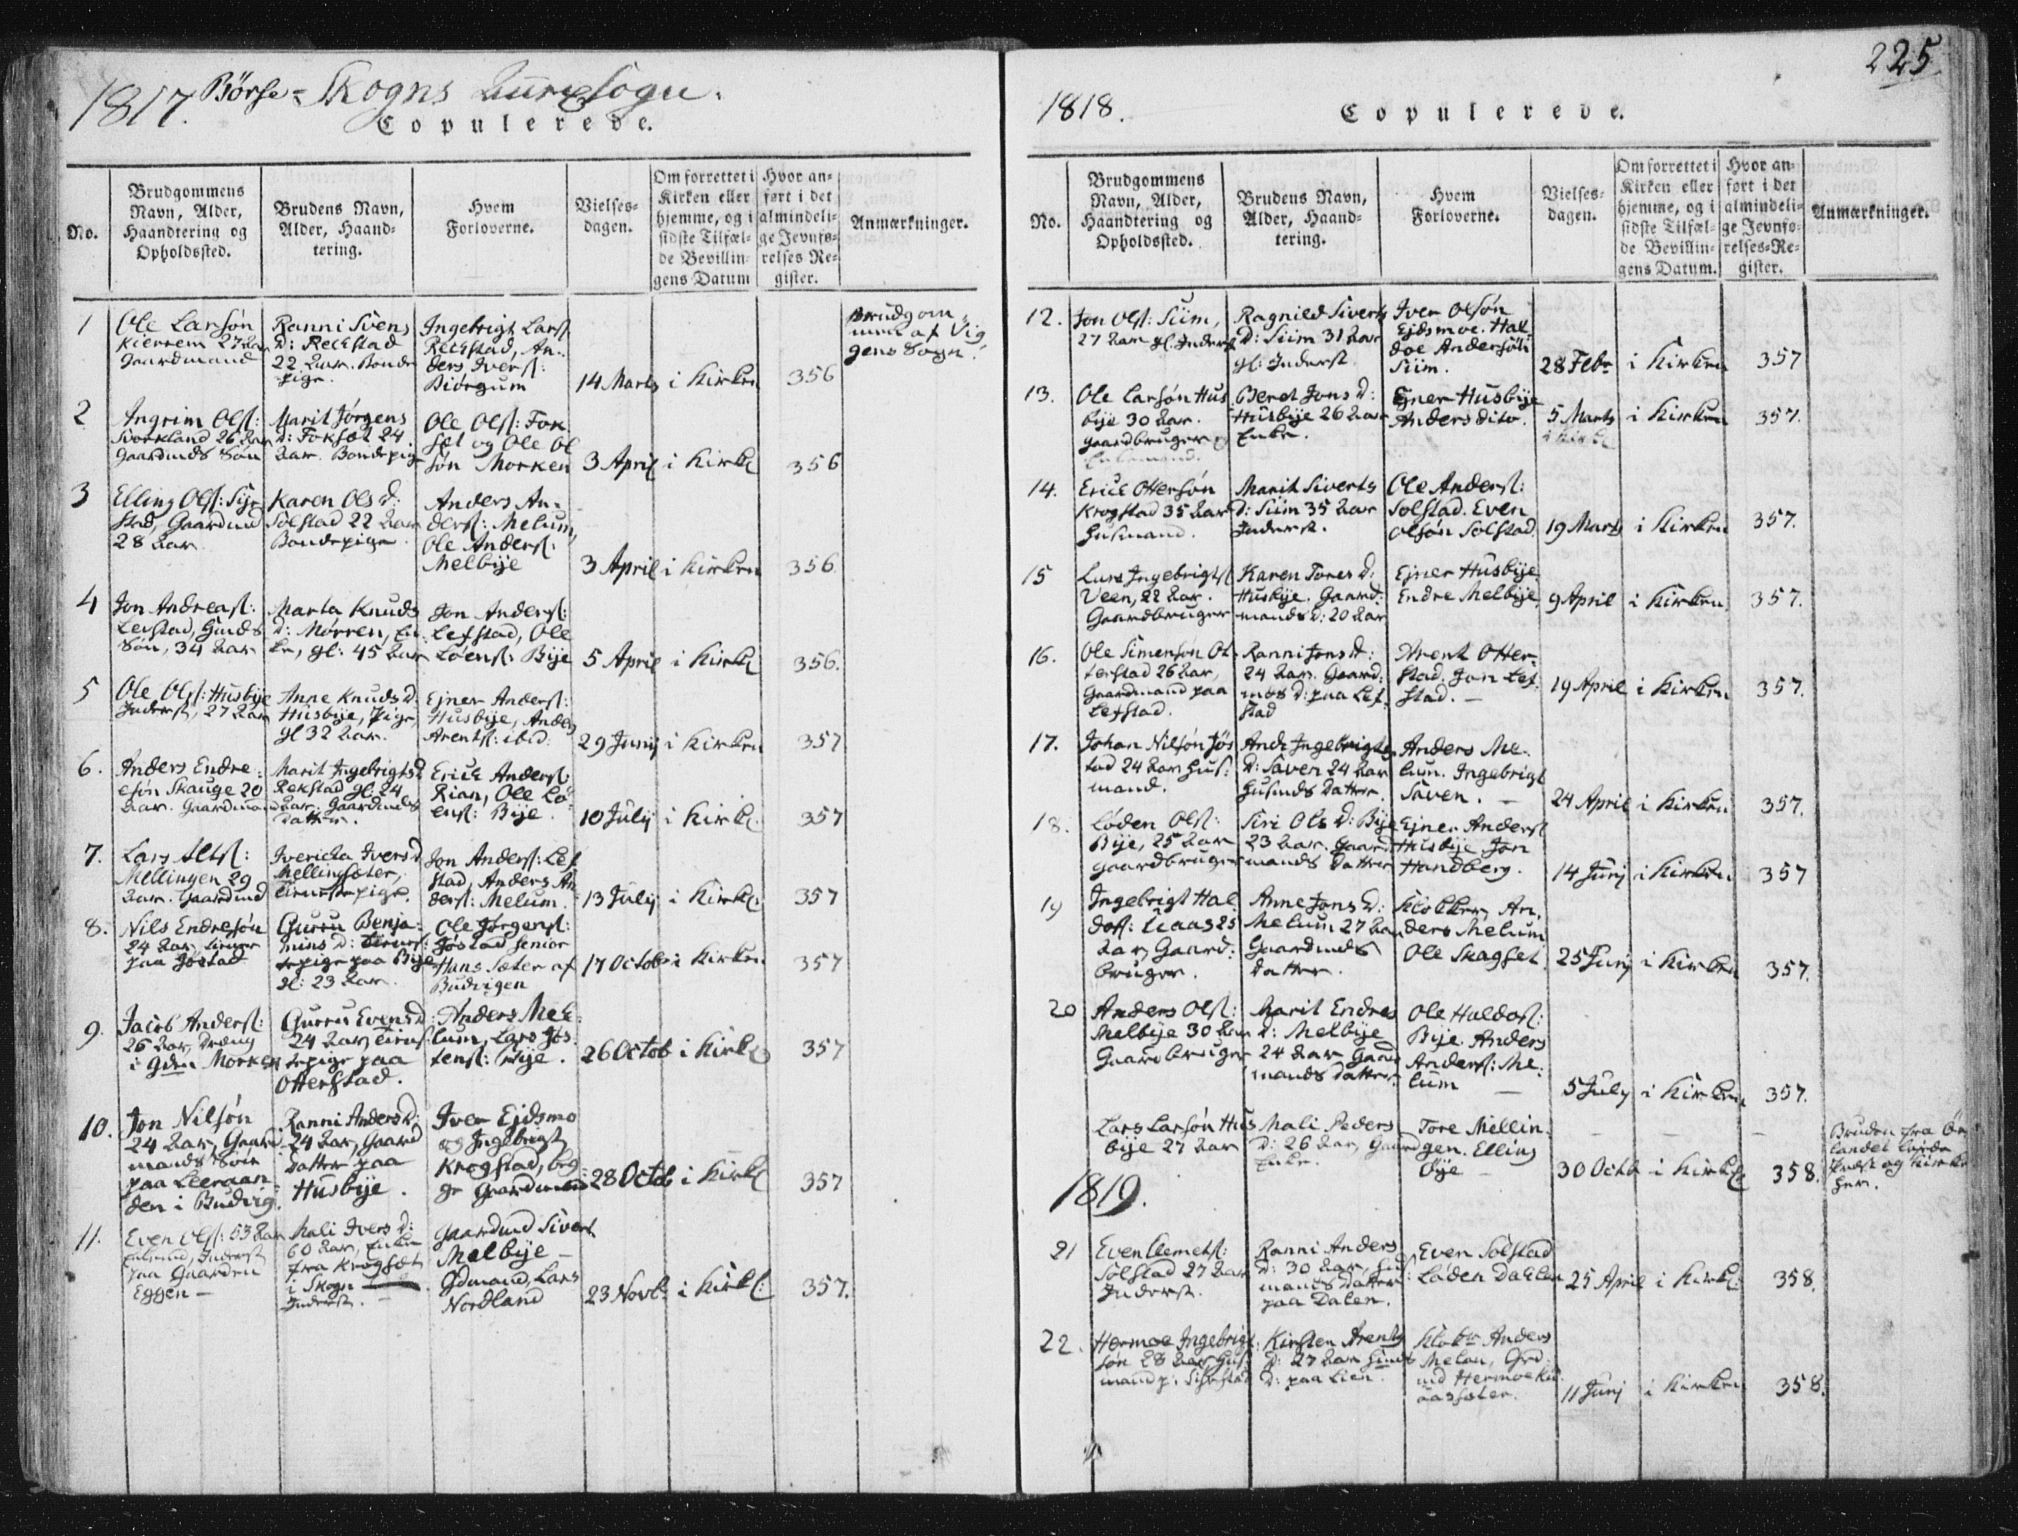 1817. Børse-Skogns Annexsogn.
Copulerede.
No.
Brudgommens Navn, Alder, Haandtering og Opholdssted.
Brudens Navn, Alder, Haandtering.
Hvem Forloverne.
Vielsesdagen.
Om forrettet i Kirken eller hjemme, og i sidste Tilfælde Bevillingens Datum
Hvor anført i det almindelige Jevnførelses Register.
Anmærkninger.
1
Ole Larsön
Kierrem 27 Aar
Gaardmand
Ranni Svens
D: Rekstad
22 Aar. Bonde
pige.
Ingebrigt Lars
Rekstad, An-
ders Ivers:
Biörgum
14 Marts
i Kirken
356
Brudgom-
men af Vig
gens Sogn.
2
Ingrim Ols:
Svorkland 26 Aar
Gaardmds Søn
Marit Jørgens
D: Foksæt 24
Aar. Bondepige
Ole Ols: Fok
set og Ole Ol
søn Morken
3 April
i Kirk
356
3
Elling Ols:
stad, Gaardmd
28 Aar.
Karen Ols D:
Solstad 22 Aar
Bondepige.
Anders An-
ders: Melum,
Ole Anders:
Melbye
3 April
i Kirken
356
4
Jon Andreas:
Lefstad, Gmds
Søn, 34 Aar
Marta Knuds
D: Mørren, En
ke, gl: 45 Aar
Jon Anders:
Lefstad, Ole
Løens: Bye
5 April
i Kirk
356.
5
Ole Ols: Husbye
Inderst, 27 Aar
Anne Knuds D:
Husbye, Pige
gl 32 Aar.
Ejner Anders:
Husbye, Anders
Arents: ibid:
29 Junij
i Kirken
357
6.
Anders Endre-
søn Skauge 20
Aar. Gaardmand
Marit Ingebrigts D
Rekstad gl: 24
Aar. Gaardmds
Datter.
Erik Anders:
Rian, Ole Lø-
ens: Bye.
10 July
i Kirk:
357
7.
Lars
Mellingen 29
Aar. Gaardmd
Ivericka Ivers D
Mellingsæter,
Tienestepige.
Jon Anders: Lef
stad Anders An
ders: Melum.
13 July
i Kirk:
357
8.
Nils Endresøn
24 Aar,
paa Jøstad
Gurru Benja-
mins D: Tienes-
tepige paa Bye
gl: 23 Aar.
Ole Jørgens:
Jøstad senior
Hans Sæter af
Budvigen
17 Octob
i Kirken
357
9.
Jacob Anders:
26 Aar, Dreng
i gden Morken
Gurru Evens D:
24 Aar, Tienes
tepige paa
Otterstad.
Anders Mel-
lum, Lars Jos-
tens: Bye.
26 Octob
i Kirk
357
10.
Jon Nilsön
24 Aar, Gaard
mands Søn
paa Leeraan
den i Budvig.
Ranni Anders D:
24 Aar, Gaard
Datter paa
Husbye.
Iver Ejdsmo
og Ingebrigt
Krogstad, beg
ge Gaardmænd
28 Octob
i Kirk
357
11.
Even Ols: 53 Aar
Enkemd, Inderst
paa Gaarden
Eggen —
Mali Ivers D:
60 Aar, Enke
fra Krogsæt
i Skogn
Inderst. —
Gaardmd Sivert
Melbye —
Gdmand, Lars
Nordland
23 Novb:
i Kirk:
357.
225
1818.
Copulerede.
No.
Brudgommens Navn, Alder, Haandtering og Opholdssted.
Brudens Navn, Alder, Haandtering.
Hvem Forloverne.
Vielsesdagen.
Om forrettet i Kirken eller hjemme, og i sidste Tilfælde Bevillingens Datum.
Hvor anført i det almindelige Jevnførelses-Register.
Anmærkninger.
12.
Jon Ols: Siim,
27 Aar gl. Inderst
Ragnild Siverts
D: Siim 31 Aar
gl: Inderst
Iver Olsøn
Ejdsmoe. Hal
doe Andersøn
Siim.
28 Febr
i Kirken
357
13.
Ole Larsøn Hus
bye 30 Aar.
Gaardbruger
Enkemand.
Beret Jons D:
Husbye 26 Aar
Enke.
Ejner Husbye
Anders dito.
5 Marts
i Kirken
357.
14.
Erick Ottersøn
Krogstad 35 Aar
Husmand.
Marit Siverts
D: Siim 35 Aar
Inderst.
Ole Anders:
Solstad. Even
Olsøn Solstad
19 Marts
i Kirken
357.
15
Lars Ingebrigts
Veen, 22 Aar.
Gaardbruger
Karen Tores D:
Husbye. Gaard:
mands D: 20 Aar
Ejner Husbye
Endre Melbye
9 April
i Kirken
357.
16.
Ole Simensøn Ot
terstad 26 Aar,
Gaardmand paa
Lefstad.
Ranni Jons D:
24 Aar. Gaard:
mds D: paa Lef:
stad
Arent Otter-
stad, Jon Lef:
stad. —
19 April
i Kirken
357.
17.
Johan Nilsøn Jøs
tad 24 Aar Hus:
mand.
Ane Ingebrigts
D: Saven 24 Aar
Husmds Datter
Anders Me-
lum. Ingebrigt
Saven. —
24 April
i Kirken
357.
18.
Løden Ols:
Bye, 25 Aar
Gaardbruger
Siri Ols D: Bye
23 Aar. Gaard
mands Datter
Ejner Anders
Husbye Jon
Handberg.
14 Junj
i Kirken
357
19
Ingebrigt Hal
dos: Aaas 25
Aar, Gaard:
bruger.
Anne Jons D:
Melum 27 Aar
Gaardmds
Datter.
Klokker An.
ders Melum
Ole Skagset
25 Junj
i Kirken
357.
20
Anders Ols:
Melbye 30 Aar
Gaardbruger
Marit Endres
D: Melbye
24 Aar Gaard
mands Datter
Ole Haldos:
Bye. Anders
Anders: Me:
lum —
5 July
i Kirken
357.
Lars Larsøn Hus
bye 27 Aar
Mali Peders
D: 26 Aar, Gaard
Enke.
Tore Mellin
gen. Elling
Øye —
30 Octb
i Kirk
358.
Bruden fra Ør
landet
og Kirke
her.
1819.
21
Even Clemets:
Solstad 27 Aar
Inderst.
Ranni Anders
D: 30 Aar, Hus
mands Datter
paa Dalen.
Even Solstad
Løden Dahlen
25 April
i Kirk:
358.
22.
Hermoe Ingebrigt
søn 28 Aar, Hus:
mand p:
Kirsten Arents
D: 27 Aar Hmds
D: paa Lien.
Klokr Anders
Melan, Grd
md Hermoe
aassæter.
11 Junj
i Kirken
358.